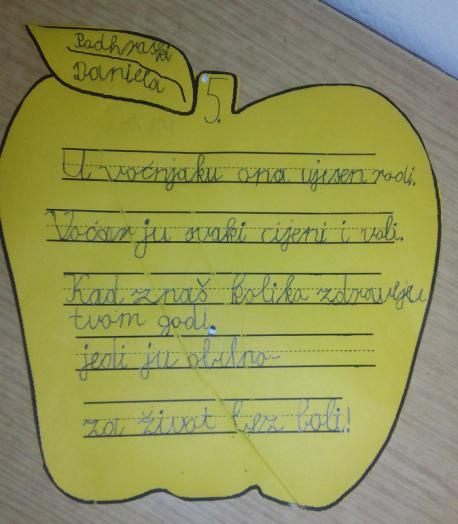 Padhraški
Daniela
5.
U voćnjaku ona ujesen rodi.
Voćar ju svaki cijeni i voli.
Kad znaš kolika zdravlju
tvom godi,
jedi ju obilno-
za život bez boli!